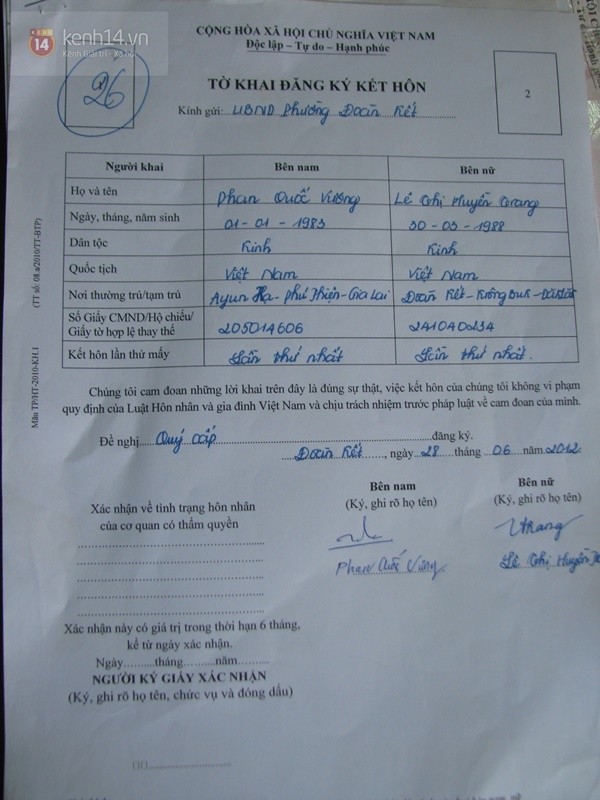 kenh14.vn
Kênh Giải trí - Xã hội
CỘNG HÒA XÃ HỘI CHỦ NGHĨA VIỆT NAM
Độc lập – Tự do – Hạnh phúc
26
2
TỜ KHAI ĐĂNG KÝ KẾT HÔN
Kính gửi: UBND Phường Đoàn Kết
Người khai Bên nam Bên nữ
Họ và tên Phan Quốc Vương Lê Thị Huyền Trang
Ngày, tháng, năm sinh 01-01-1983 30-03-1988
Dân tộc Kinh Kinh
Quốc tịch Việt Nam Việt Nam
Nơi thường trú/tạm trú Ayun Hạ - Phú Thiện - Gia Lai Đoàn Kết - Krông Buk -
Số Giấy CMND/Hộ chiếu/
Giấy tờ hợp lệ thay thế 205014606 241040234
Kết hôn lần thứ mấy Lần thứ nhất Lần thứ nhất.
Chúng tôi cam đoan những lời khai trên đây là đúng sự thật, việc kết hôn của chúng tôi không vi phạm
quy định của Luật Hôn nhân và gia đình Việt Nam và chịu trách nhiệm trước pháp luật về cam đoan của mình.
Đề nghị Quý cấp đăng ký.
Đoàn Kết, ngày 28 tháng 06 năm 2012.
Bên nam Bên nữ
(Ký, ghi rõ họ tên) (Ký, ghi rõ họ tên)
Trang
Phan Quốc Vương Lê Thị Huyền
Xác nhận về tình trạng hôn nhân
của cơ quan có thẩm quyền
Xác nhận này có giá trị trong thời hạn 6 tháng,
kể từ ngày xác nhận.
Ngày.......tháng.......năm.......
NGƯỜI KÝ GIẤY XÁC NHẬN
(Ký, ghi rõ họ tên, chức vụ và đóng dấu)
Mẫu TP/HT-2010-KH.1 (TT số: 08.a/2010/TT-BTP)